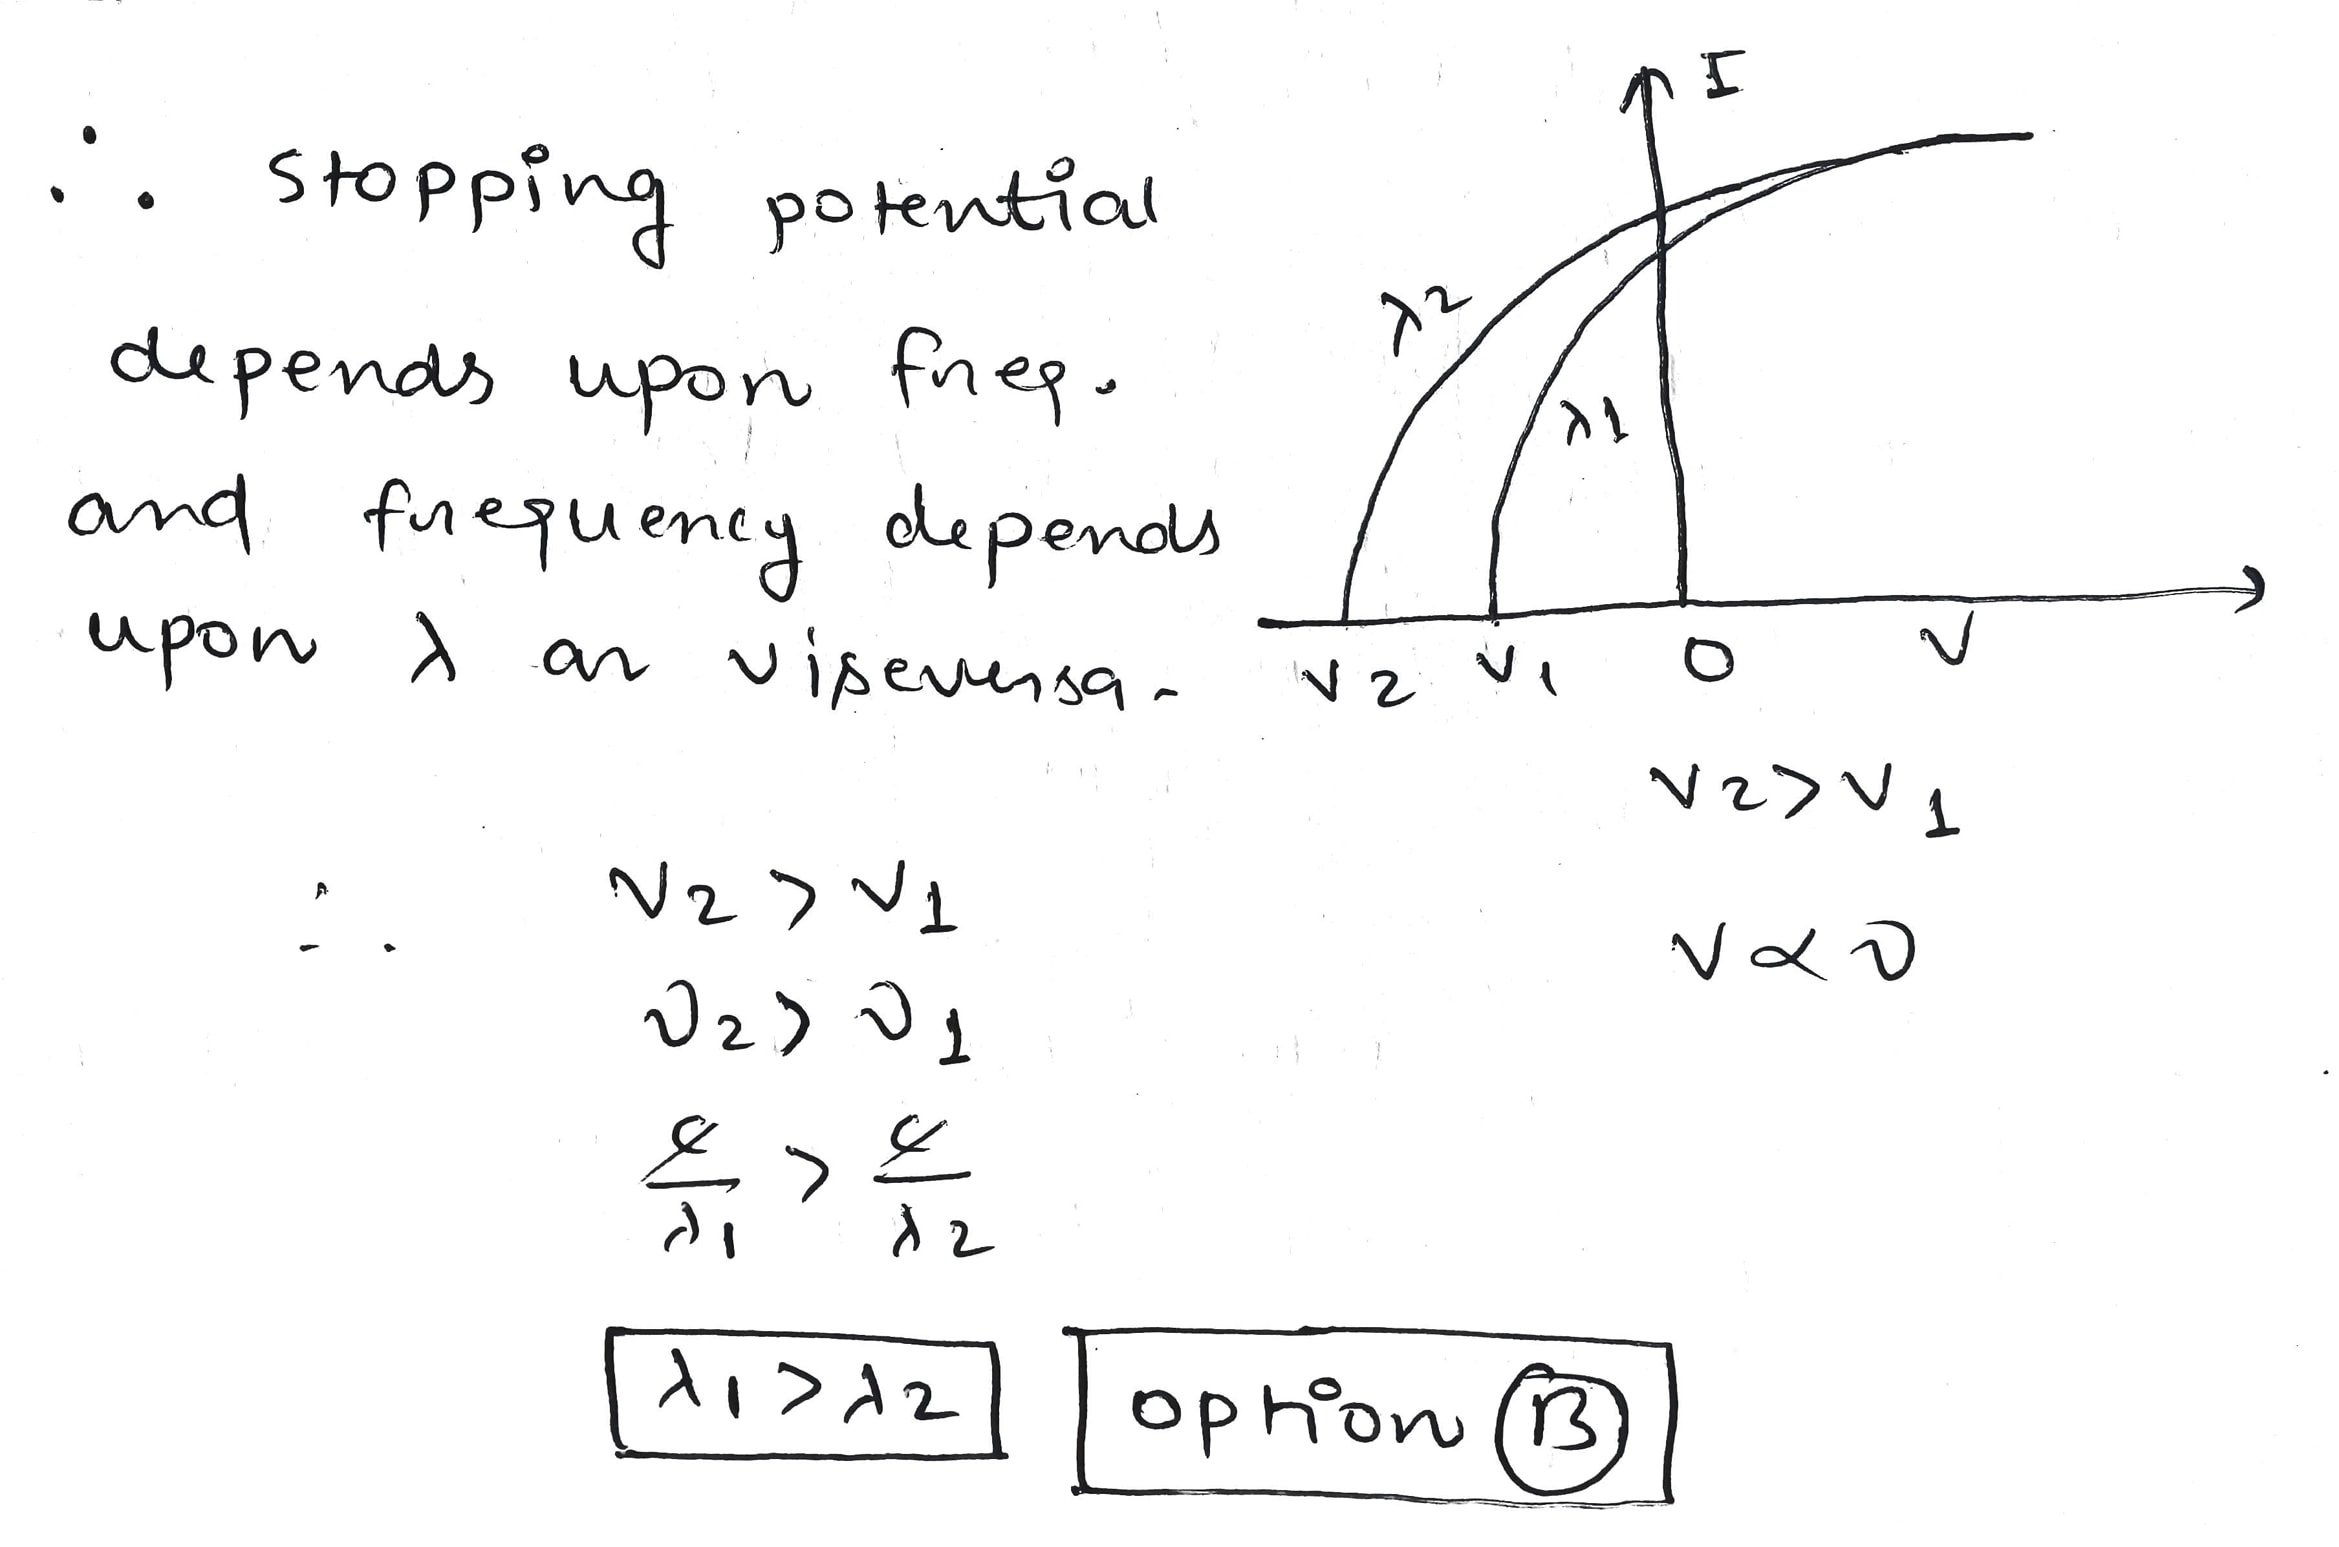 ∴ stopping potential
depends upon freq.
and frequency depends
upon λ or viseversa.
I
λ2
λ1
V2 V1 0 V
V2 > V1
V ∝ ν
∴ V2 > V1
ν2 > ν1
c/λ1 > c/λ2
λ1 > λ2
option B